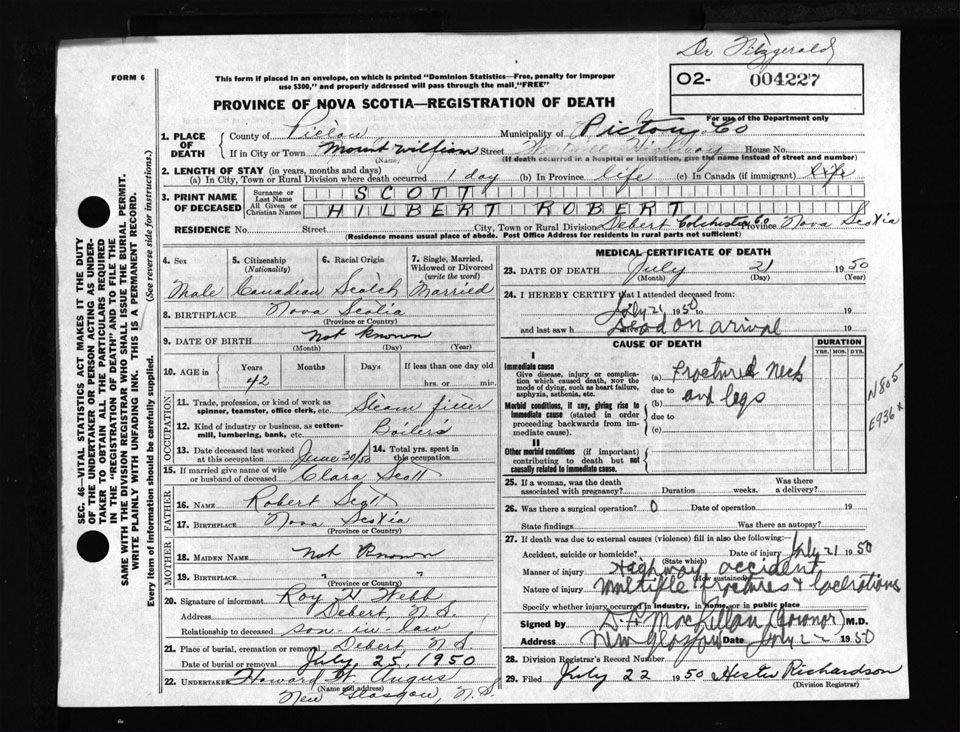 Dr Fitzgerald
FORM 6
02- 004227
This form if placed in an envelope, on which is printed "Dominion Statistics—Free, penalty for improper
use $300," and properly addressed will pass through the mail "FREE"
For use of the Department only
PROVINCE OF NOVA SCOTIA—REGISTRATION OF DEATH
1. PLACE OF DEATH County of Pictou Municipality of Pictou Co
If in City or Town Mount William Street Highway House No.
(Name) (If death occurred in a hospital or institution, give the name instead of street and number)
2. LENGTH OF STAY (in years, months and days)
(a) In City, Town or Rural Division where death occurred 1 day (b) In Province life (c) In Canada (if immigrant) life
3. PRINT NAME OF DECEASED Surname or Last Name SCOTT
All Given or Christian Names HILBERT ROBERT
RESIDENCE No. Street City, Town or Rural Division Debert Colchester Co Province Nova Scotia
(Residence means usual place of abode. Post Office Address for residents in rural parts not sufficient)
4. Sex 5. Citizenship (Nationality) 6. Racial Origin 7. Single, Married, Widowed or Divorced (write the word)
Male Canadian Scotch Married
8. BIRTHPLACE Nova Scotia
(Province or Country)
9. DATE OF BIRTH Not Known
(Month) (Day) (Year)
10. AGE in Years Months Days If less than one day old
42 hrs. or min.
OCCUPATION
11. Trade, profession, or kind of work as spinner, teamster, office clerk, etc. Steam fitter
12. Kind of industry or business, as cotton-mill, lumbering, bank, etc. Boilers
13. Date deceased last worked at this occupation June 30/50 14. Total yrs. spent in this occupation
15. If married give name of wife or husband of deceased Clara Scott
FATHER
16. Name Robert Scott
17. Birthplace Nova Scotia
(Province or Country)
MOTHER
18. Maiden Name Not Known
19. Birthplace " "
(Province or Country)
20. Signature of informant Roy H Webb
Address Debert, N.S.
Relationship to deceased son-in-law
21. Place of burial, cremation or removal Debert N.S.
Date of burial or removal July 25, 1950
22. Undertaker Howard W. Angus
(Name and address)
New Glasgow, N.S.
MEDICAL CERTIFICATE OF DEATH
23. DATE OF DEATH July 21 1950
(Month) (Day) (Year)
24. I HEREBY CERTIFY that I attended deceased from
July 21 1950 to 19
and last saw h dead on arival 19
CAUSE OF DEATH DURATION
YRS. MOS. DYS.
I
Immediate cause
Give disease, injury or complication which caused death, NOT the mode of dying, such as heart failure, asphyxia, asthenia, etc.
(a) Fractured neck
due to and legs
(b)
due to
(c)
Morbid conditions, if any, giving rise to immediate cause (stated in order proceeding backwards from immediate cause).
II
Other morbid conditions (if important) contributing to death but not causally related to immediate cause.
N805
E936x
25. If a woman, was the death associated with pregnancy? Duration weeks. Was there a delivery?
26. Was there a surgical operation? 0 Date of operation 19
State findings Was there an autopsy?
27. If death was due to external causes (violence) fill in also the following:
Accident, suicide or homicide? Date of injury July 21 1950
(State which)
Manner of injury Highway accident
(How sustained)
Nature of injury Multiple fractures & lacerations
Specify whether injury occurred in industry, in home, or in public place
Signed by D.F. MacLellan (Coronor) M.D.
Address New Glasgow Date July 22 1950
28. Division Registrar's Record Number
29. Filed July 22 1950 Hester Richardson
(Division Registrar)
SEC. 46—VITAL STATISTICS ACT MAKES IT THE DUTY
OF THE UNDERTAKER OR PERSON ACTING AS UNDER-
TAKER TO OBTAIN ALL THE PARTICULARS REQUIRED
IN THE "REGISTRATION OF DEATH" AND TO FILE THE
SAME WITH THE DIVISION REGISTRAR WHO SHALL ISSUE THE BURIAL PERMIT.
WRITE PLAINLY WITH UNFADING INK. THIS IS A PERMANENT RECORD.
Every item of information should be carefully supplied. (See reverse side for instructions.)